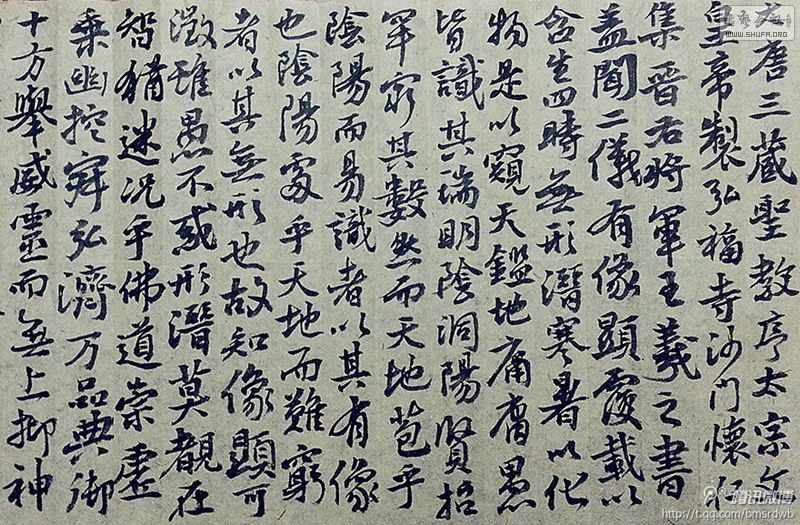 大唐三藏聖教序太宗文
皇帝製弘福寺沙門懷仁
集晉右將軍王羲之書
盖聞二儀有像顯覆載以
含生四時無形潛寒暑以化
物是以窺天鑑地庸腐愚
皆識其端明陰洞陽賢哲
罕窮其數然而天地苞乎
陰陽而易識者以其有像
也陰陽處乎天地而難窮
者以其無形也故知像顯可
徵雖愚不惑形潛莫覩在
智猶迷况乎佛道崇虛
乘幽控寂弘濟万品典御
十方舉威靈而無上抑神
WWW.SHUFA.ORG
腾讯微博
http://t.qq.com/bmsrdwb